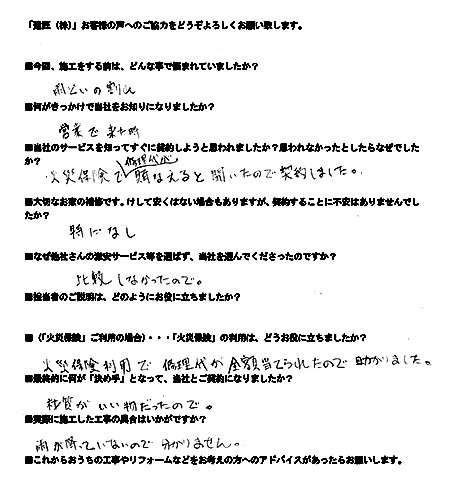 「建匠（株）」お客様の声へのご協力をどうぞよろしくお願い致します。
■今回、施工をする前は、どんな事で悩まれていましたか？
雨といの割れ
■何がきっかけで当社をお知りになりましたか？
営業で来た時
■当社のサービスを知ってすぐに契約しようと思われましたか？思われなかったとしたらなぜでした
か？
修理代が
火災保険で賄なえると聞いたので契約しました。
■大切なお家の補修です。けして安くはない場合もありますが、契約することに不安はありませんでし
たか？
特になし
■なぜ他社さんの激安サービス等を選ばず、当社を選んでくださったのですか？
比較しなかったので。
■担当者のご説明は、どのようにお役に立ちましたか？
■（「火災保険」ご利用の場合）・・・「火災保険」の利用は、どうお役に立ちましたか？
火災保険利用で修理代が全額当てられたので助かりました。
■最終的に何が「決め手」となって、当社とご契約になりましたか？
材質がいい物だったので。
■実際に施工した工事の具合はいかがですか？
雨が降っていないので分かりません。
■これからおうちの工事やリフォームなどをお考えの方へのアドバイスがあったらお願いします。